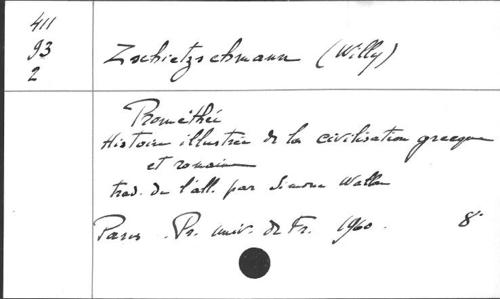 411
93
2
Zschietzschmann (Willy)
Prométhée
Histoire illustrée de la civilisation grecque
et romaine
trad. de l'all. par Simone Wallon
Paris. Pr. univ. de Fr. 1960. 8°